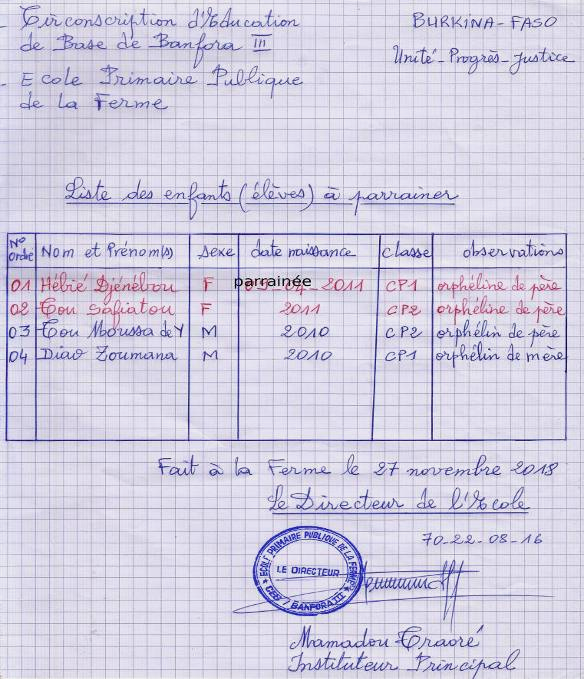 Circonscription d'Education
de Base de Banfora III
BURKINA-FASO
Unité-Progrès-Justice
- Ecole Primaire Publique
de la Ferme
Liste des enfants (élèves) à parrainer
N° Ordre Nom et Prénom(s) sexe date naissance classe observations
01 Hébié Djénébou F parrainée 2011 CP1 orphéline de père
02 Cou Safiatou F 2011 CP2 orphéline de père
03 Cou Moussa de Y M 2010 CP2 orphélin de père
04 Diao Zoumana M 2010 CP1 orphélin de mère
Fait à la Ferme le 27 novembre 2018
Le Directeur de l'Ecole
70-22-08-16
ECOLE PRIMAIRE PUBLIQUE DE LA FERME
LE DIRECTEUR
CEB / BANFORA III
Mamadou Traoré
Instituteur Principal